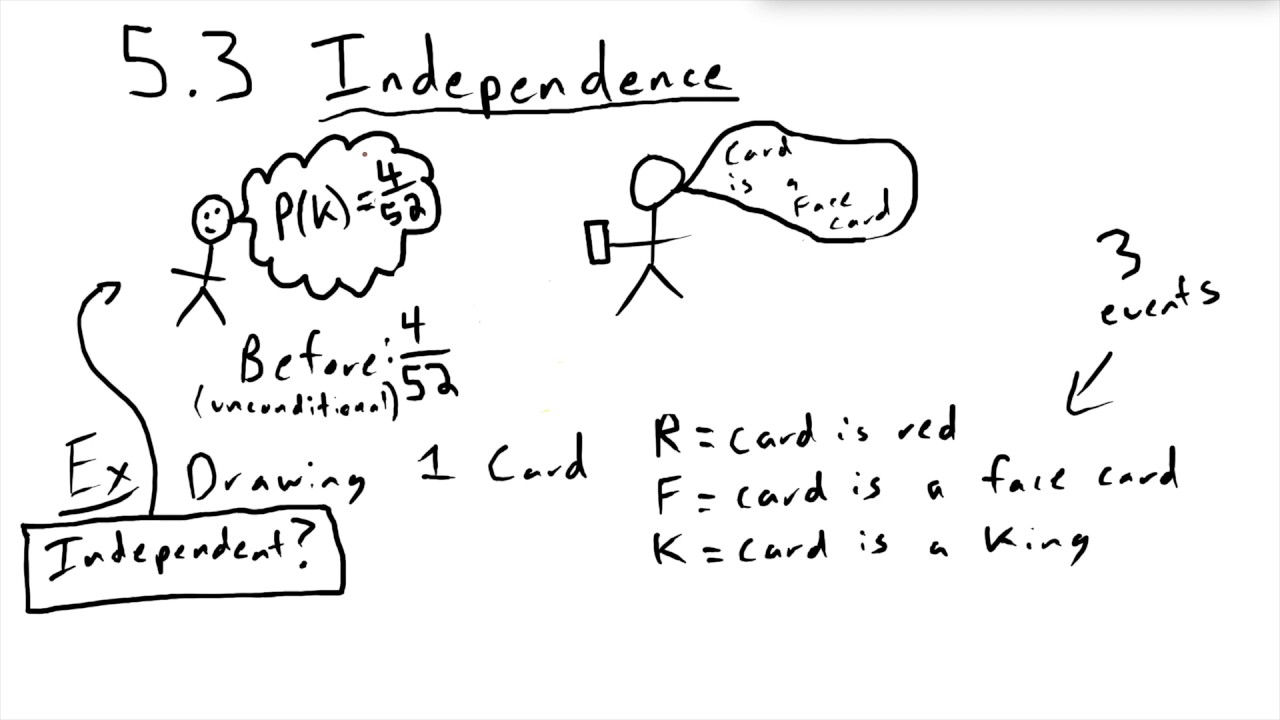 5.3 Independence
P(K) = 4/52
Card
is a
Face
card
3
events
Before: 4/52
(unconditional)
Ex Drawing 1 Card
R = card is red
F = card is a face card
K = card is a King
Independent?